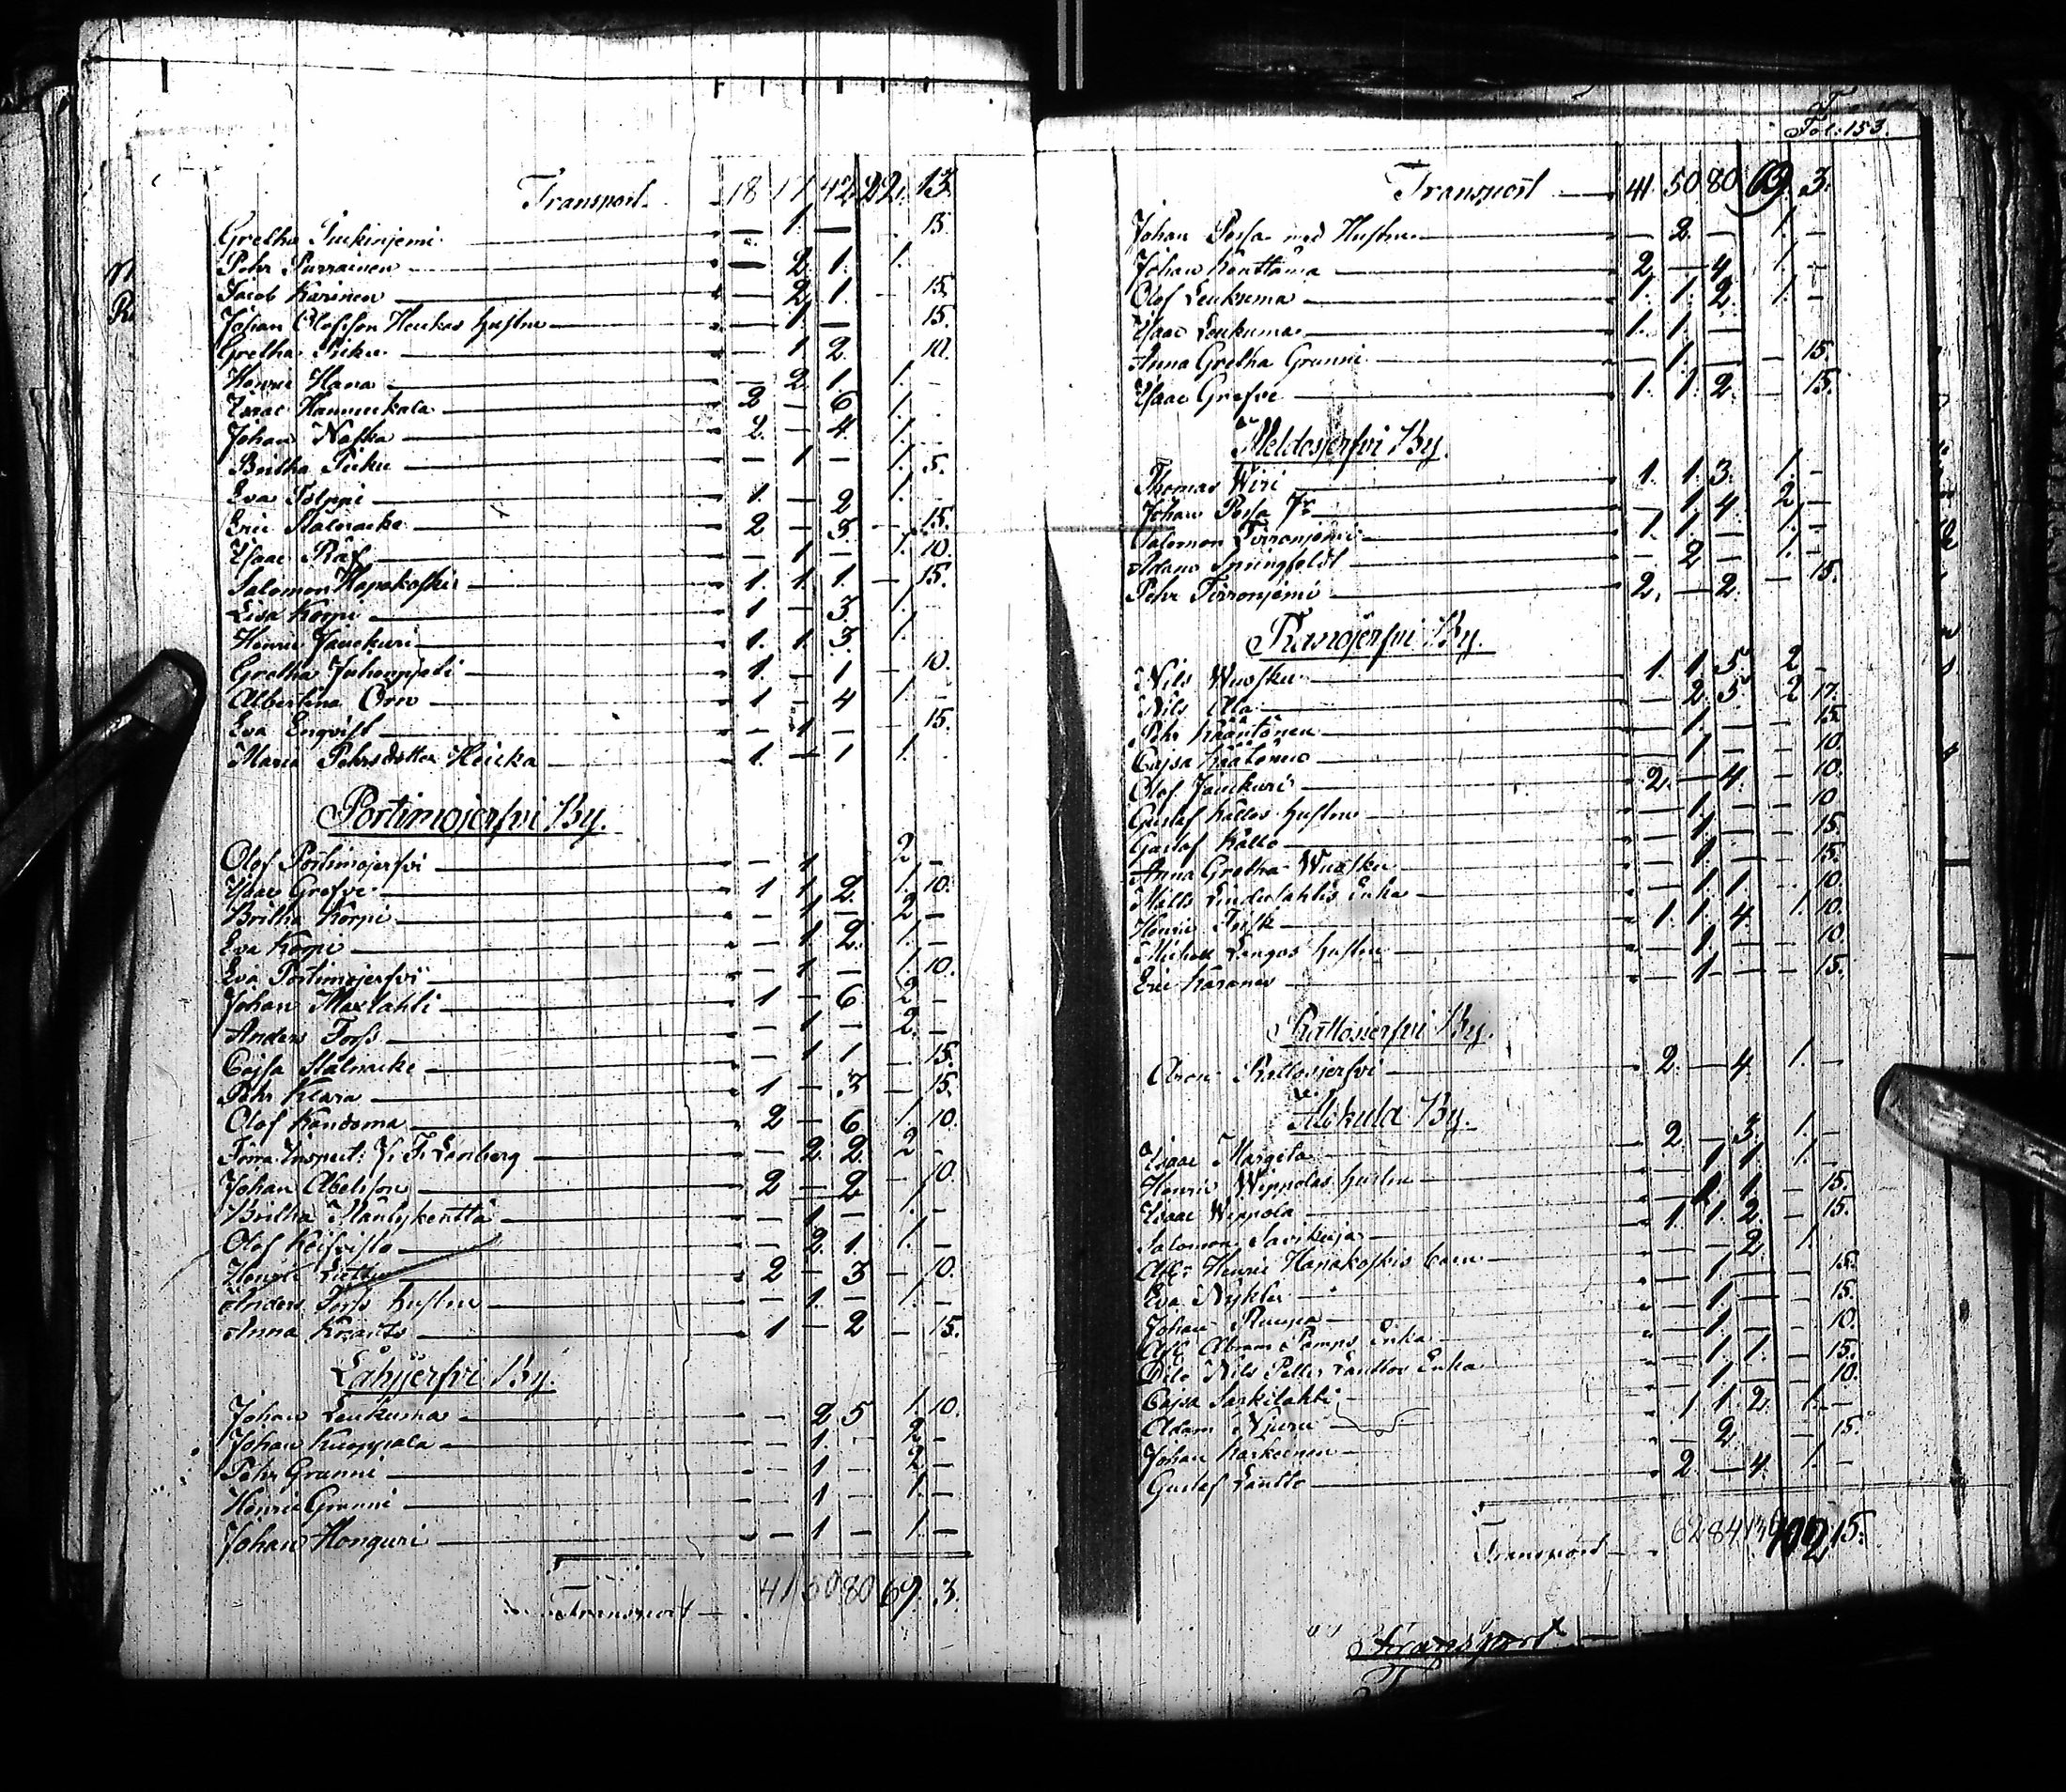 Transport. 18 17 42 22. 13.
Gretha — 1. — 15.
Pehr Purrainen — 2. 1. 1.
Jacob Karinen — 2. 1. — 15.
Johan Olofsson Heickas hustru — 1. — 15.
Gretha — 1. 2. 10.
Henric Hara — 2. 1. 1. —
Isaac Hannukala 2 — 6. 1.
Johan Naska 2. — 4. 1. —
Britha Pieku — 1 — 1. 5.
Eva Tolppi 1. — 2 1. —
Eric Stålnacke 2 — 5. — 15.
Isaac Räf — 1 — 1. 10.
Salomon Hapakoski 1. 1. 1. — 15.
Lisa Korpi 1 — 3. 1. —
Henric Jauckuri 1. 1. 3. 1.
Gretha 1. — 1 — 10.
Albertina Örn 1 — 4 1. —
Eva Enqvist — 1 — 15.
Maria Pehrsdotter Heicka 1. — 1 1.
Portimojerfvi By.
Olof Portimojerfvi — 1 2 —
Isaac Grefve 1 1 2. 1. 10.
Britha Korpi — 1 — 2 —
Eva Korpi — 1 2. 1. —
Eva Portimojerfvi — 1 — 1. 10.
Johan Maxlahti 1 — 6 2 —
Anders Forss — 1 — 2. —
Cajsa Stålnacke — 1 1 — 15.
Pehr Klara 1 — 3 — 15.
Olof Kandoma 2 — 6. 1. 10.
— 2. 2. 2 —
Johan Abelsson 2 — 2 — 10.
Britha Mäntykenttä — 1 — 1. —
Olof Keifvisto — 2. 1. 1. —
2 — 3 — 10.
Anders Forss hustru — 1. — 1. —
Anna Krants 1 — 2 — 15.
Låhijerfvi By.
Johan Leukuma — 2 5 1. 10.
Johan Kuoppala — 1. — 2. —
Pehr Granni — 1 — 2 —
Henric Granni — 1 — 1. —
Johan Honguri — 1 — 1. —
Transport — 41 50 80 69. 3.
Fol: 153.
Transport — 41. 50. 80. 69. 3.
Johan Persa med Hustru — 2. — 1. —
Johan Kenttämä 2 — 4. 1. —
Olof Leukuma 1. 1. 2. 1. —
Isaac Leukuma 1. 1. —
Anna Gretha Granni — 1. — — 15.
Isaac Grefve 1. 1. 2. — 15.
Meldosjerfvi By.
Thomas Wiri 1. 1. 3. 1. —
Johan Persa — 1 4. 2 —
Salomon Tirronjemi 1. 1. — 1. —
Adam Springfeldt — 2 — 1. —
Pehr Tirronjemi 2. — 2. — 15.
Ranojerfvi By.
Nils Wuosku 1. 1 5. 2 —
Nils Ala — 2. 5 2 17.
Pehr Kääntönen — 1. — — 15.
Cajsa — 1 — — 10.
Olof Jauckuri 2. — 4. — 10.
Gustaf Kallos hustru — 1. — — 10
Gustaf Kallo — 1. — — 15.
Anna Gretha Wuosku — 1. — — 15.
Matts Linderlahtis Enka — 1. 1. — 10.
Henric Frisk 1. 1. 4. 1. 10.
Michels Langas hustru — 1. — — 10
Eric Karanen — 1. — — 15.
Rattosjerfvi By.
Aron Rattosjerfvi 2. — 4. 1. —
Mckula By.
Isaac Margeta 2. — 3. 1. —
Henric Wippolas hustru — 1 1. 1. —
Isaac Wippola — 1. 1. — 15.
Salomon Savikuja 1. 1. 2. — 15.
Afl: Henric Hanakoskis barn — — 2. 1.
Eva Nykler — 1. — — 15.
Johan Rumpa — 1. — — 15.
Afl: Abram Pamps Enka — 1. — — 10.
Dito Nils Petter Lanttos Enka — 1. 1. — 15.
Cajsa Sarkilahti — 1. — — 10.
Adam 1 1. 2. 1. —
Johan Karkeinen — 2. — 15.
Gustaf Lantto 2. — 4. 1. —
Transport — 62 84 136 102 15.
Transport —